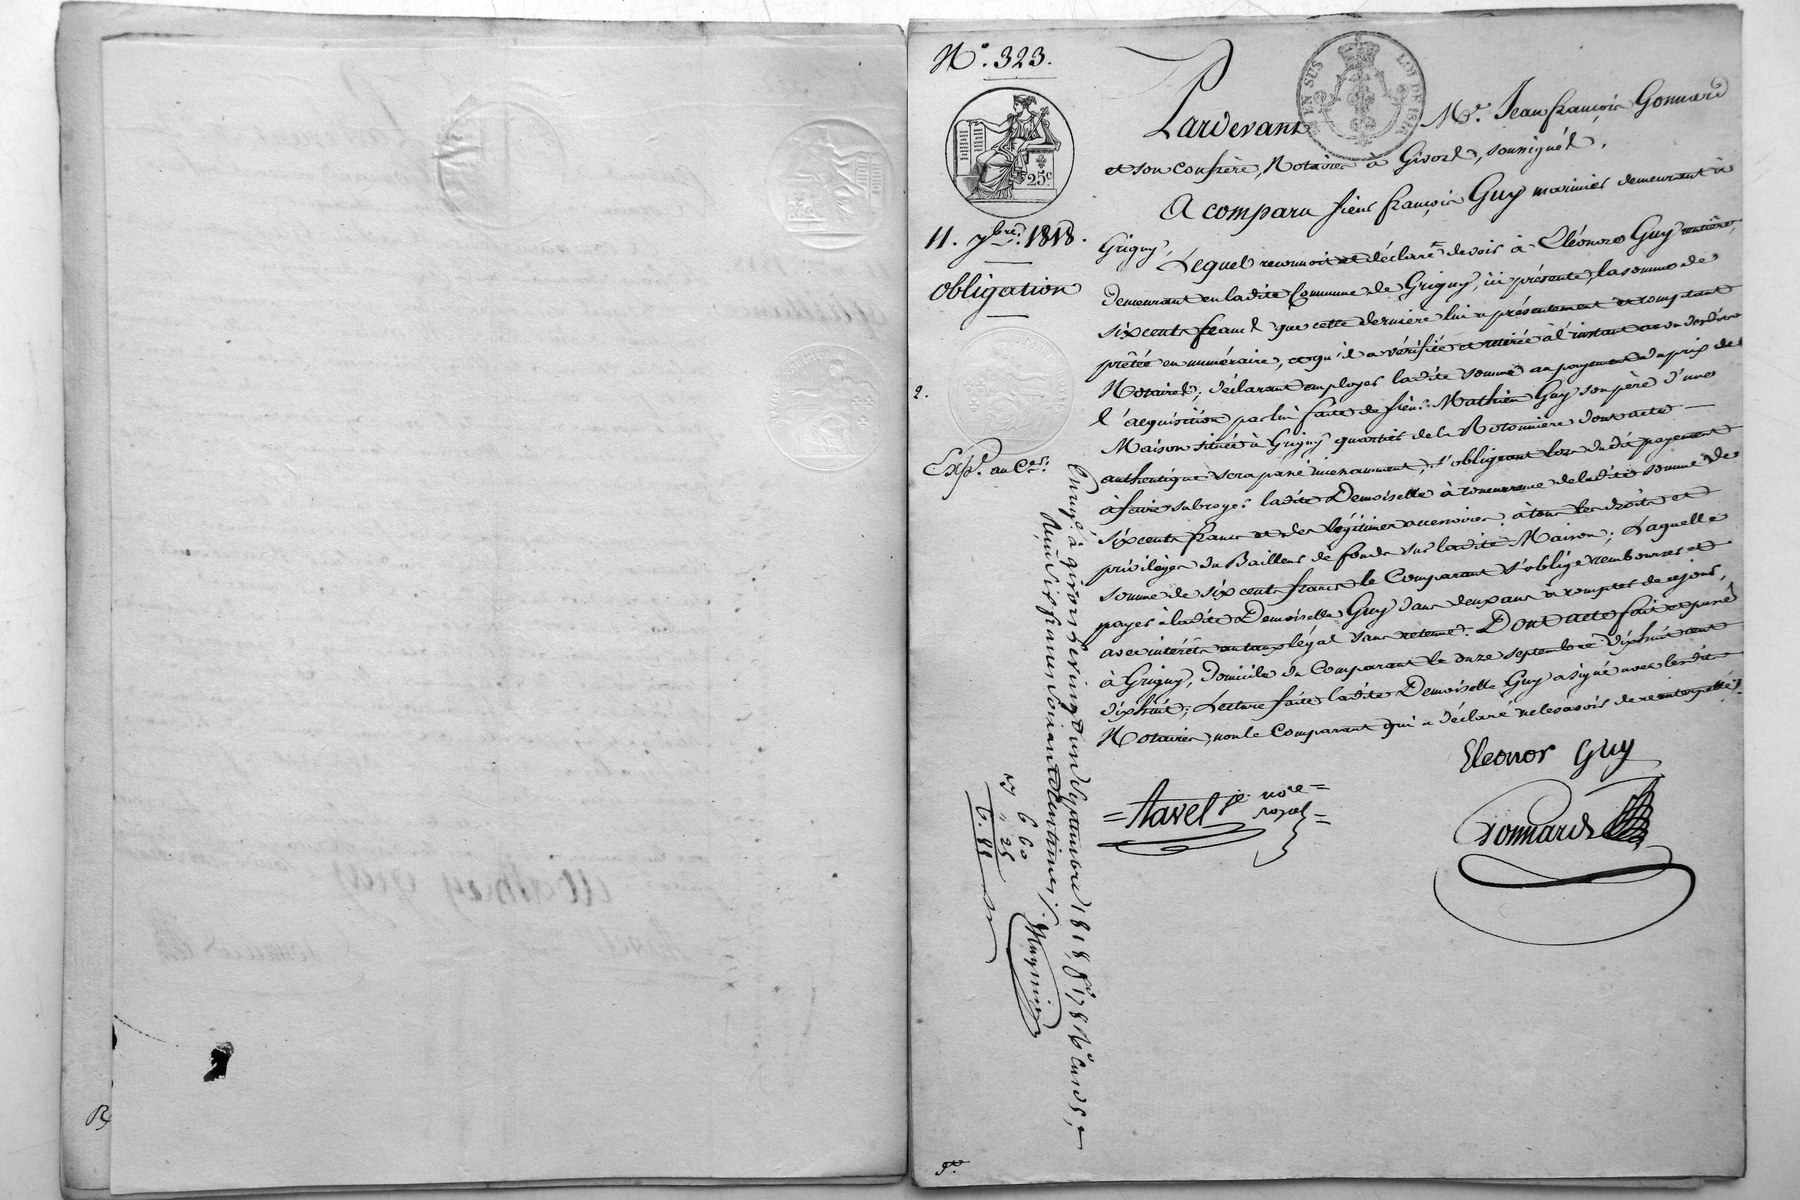 N.° 323.
25c.
EN SUS
LOI DE 1816
11. 7bre. 1818.
Obligation
2.
Expé. au Cer.
Pardevant Me. Jean françois Gonnard
et son confrère, Notaires à Givors, soussignés.
A comparu sieur françois Guy marinier demeurant à
Grigny, Lequel reconnoit et déclare devoir à Eléonore Guy rentière,
demeurant en ladite Commune de Grigny, ici présente, la somme de
six cents francs que cette dernière lui a présentement et comptant
prêtée en numéraire, et qu'il a vérifiée et retirée à l'instant au vu desdits
Notaires; déclarant employer ladite somme au payement du prix de
l'acquisition par lui faite de sieur Mathieu Guy son père d'une
Maison située à Grigny quartier de la Rotonnière dont acte
authentique sera passé incessamment, s'obligeant lors dudit payement
à faire subroger ladite Demoiselle à concurrence de ladite somme de
six cents francs et des légitimes accessoires, à tous les droits et
privilèges du Bailleur de fonds sur ladite Maison; Laquelle
somme de six cents francs le Comparant s'oblige rembourser et
payer à ladite Demoiselle Guy dans deux ans à compter de ce jour,
avec intérêts au taux légal sans retenue. Dont acte fait et passé
à Grigny, Domicile du Comparant le onze septembre dix huit cent
dix huit; Lecture faite ladite Demoiselle Guy a signé avec lesdits
Notaires, non le Comparant qui a déclaré ne le savoir de ce interpellé.
Eleonor Guy
Favel jne. nore
royal
Gonnard
Enregé. à givors le vingt un septembre 1818, fo. 178 Vo. Case 5,
Reçu six francs soixante centimes.
6 60
" 25
6. 85
R